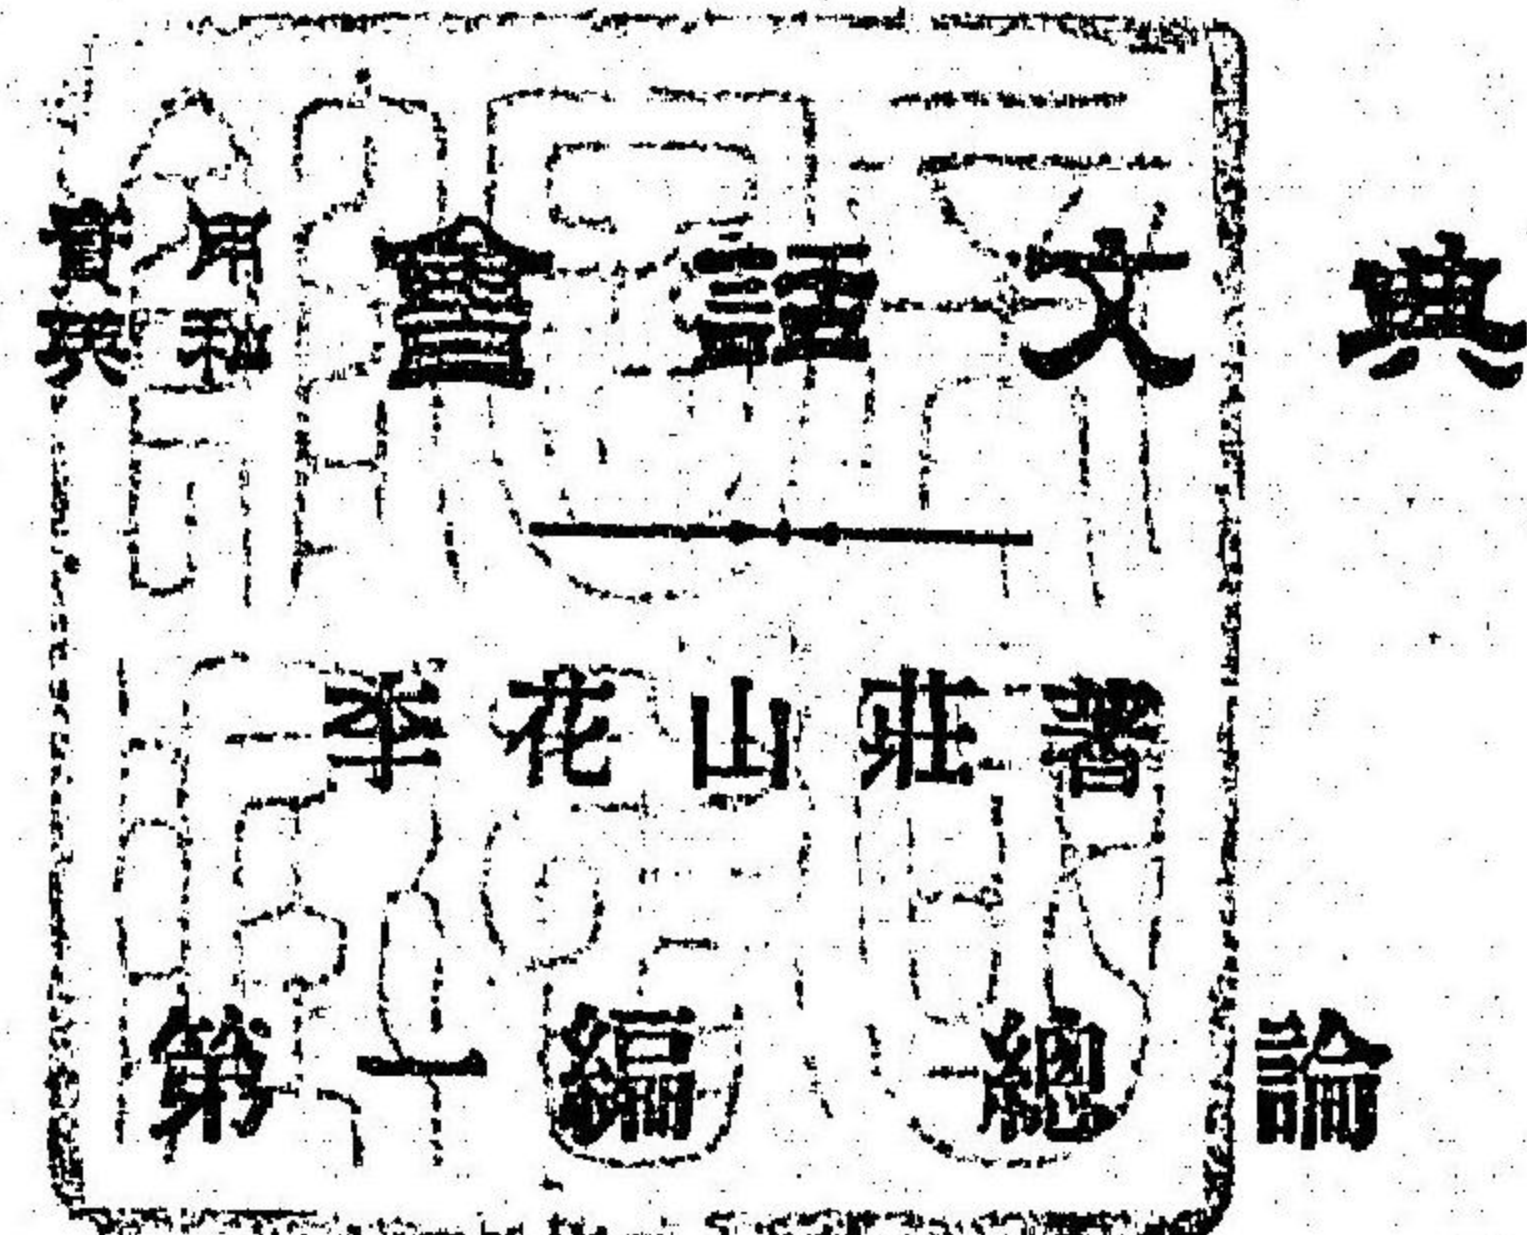 實用
英和
會話文典
李花山莊著
第一編 總論